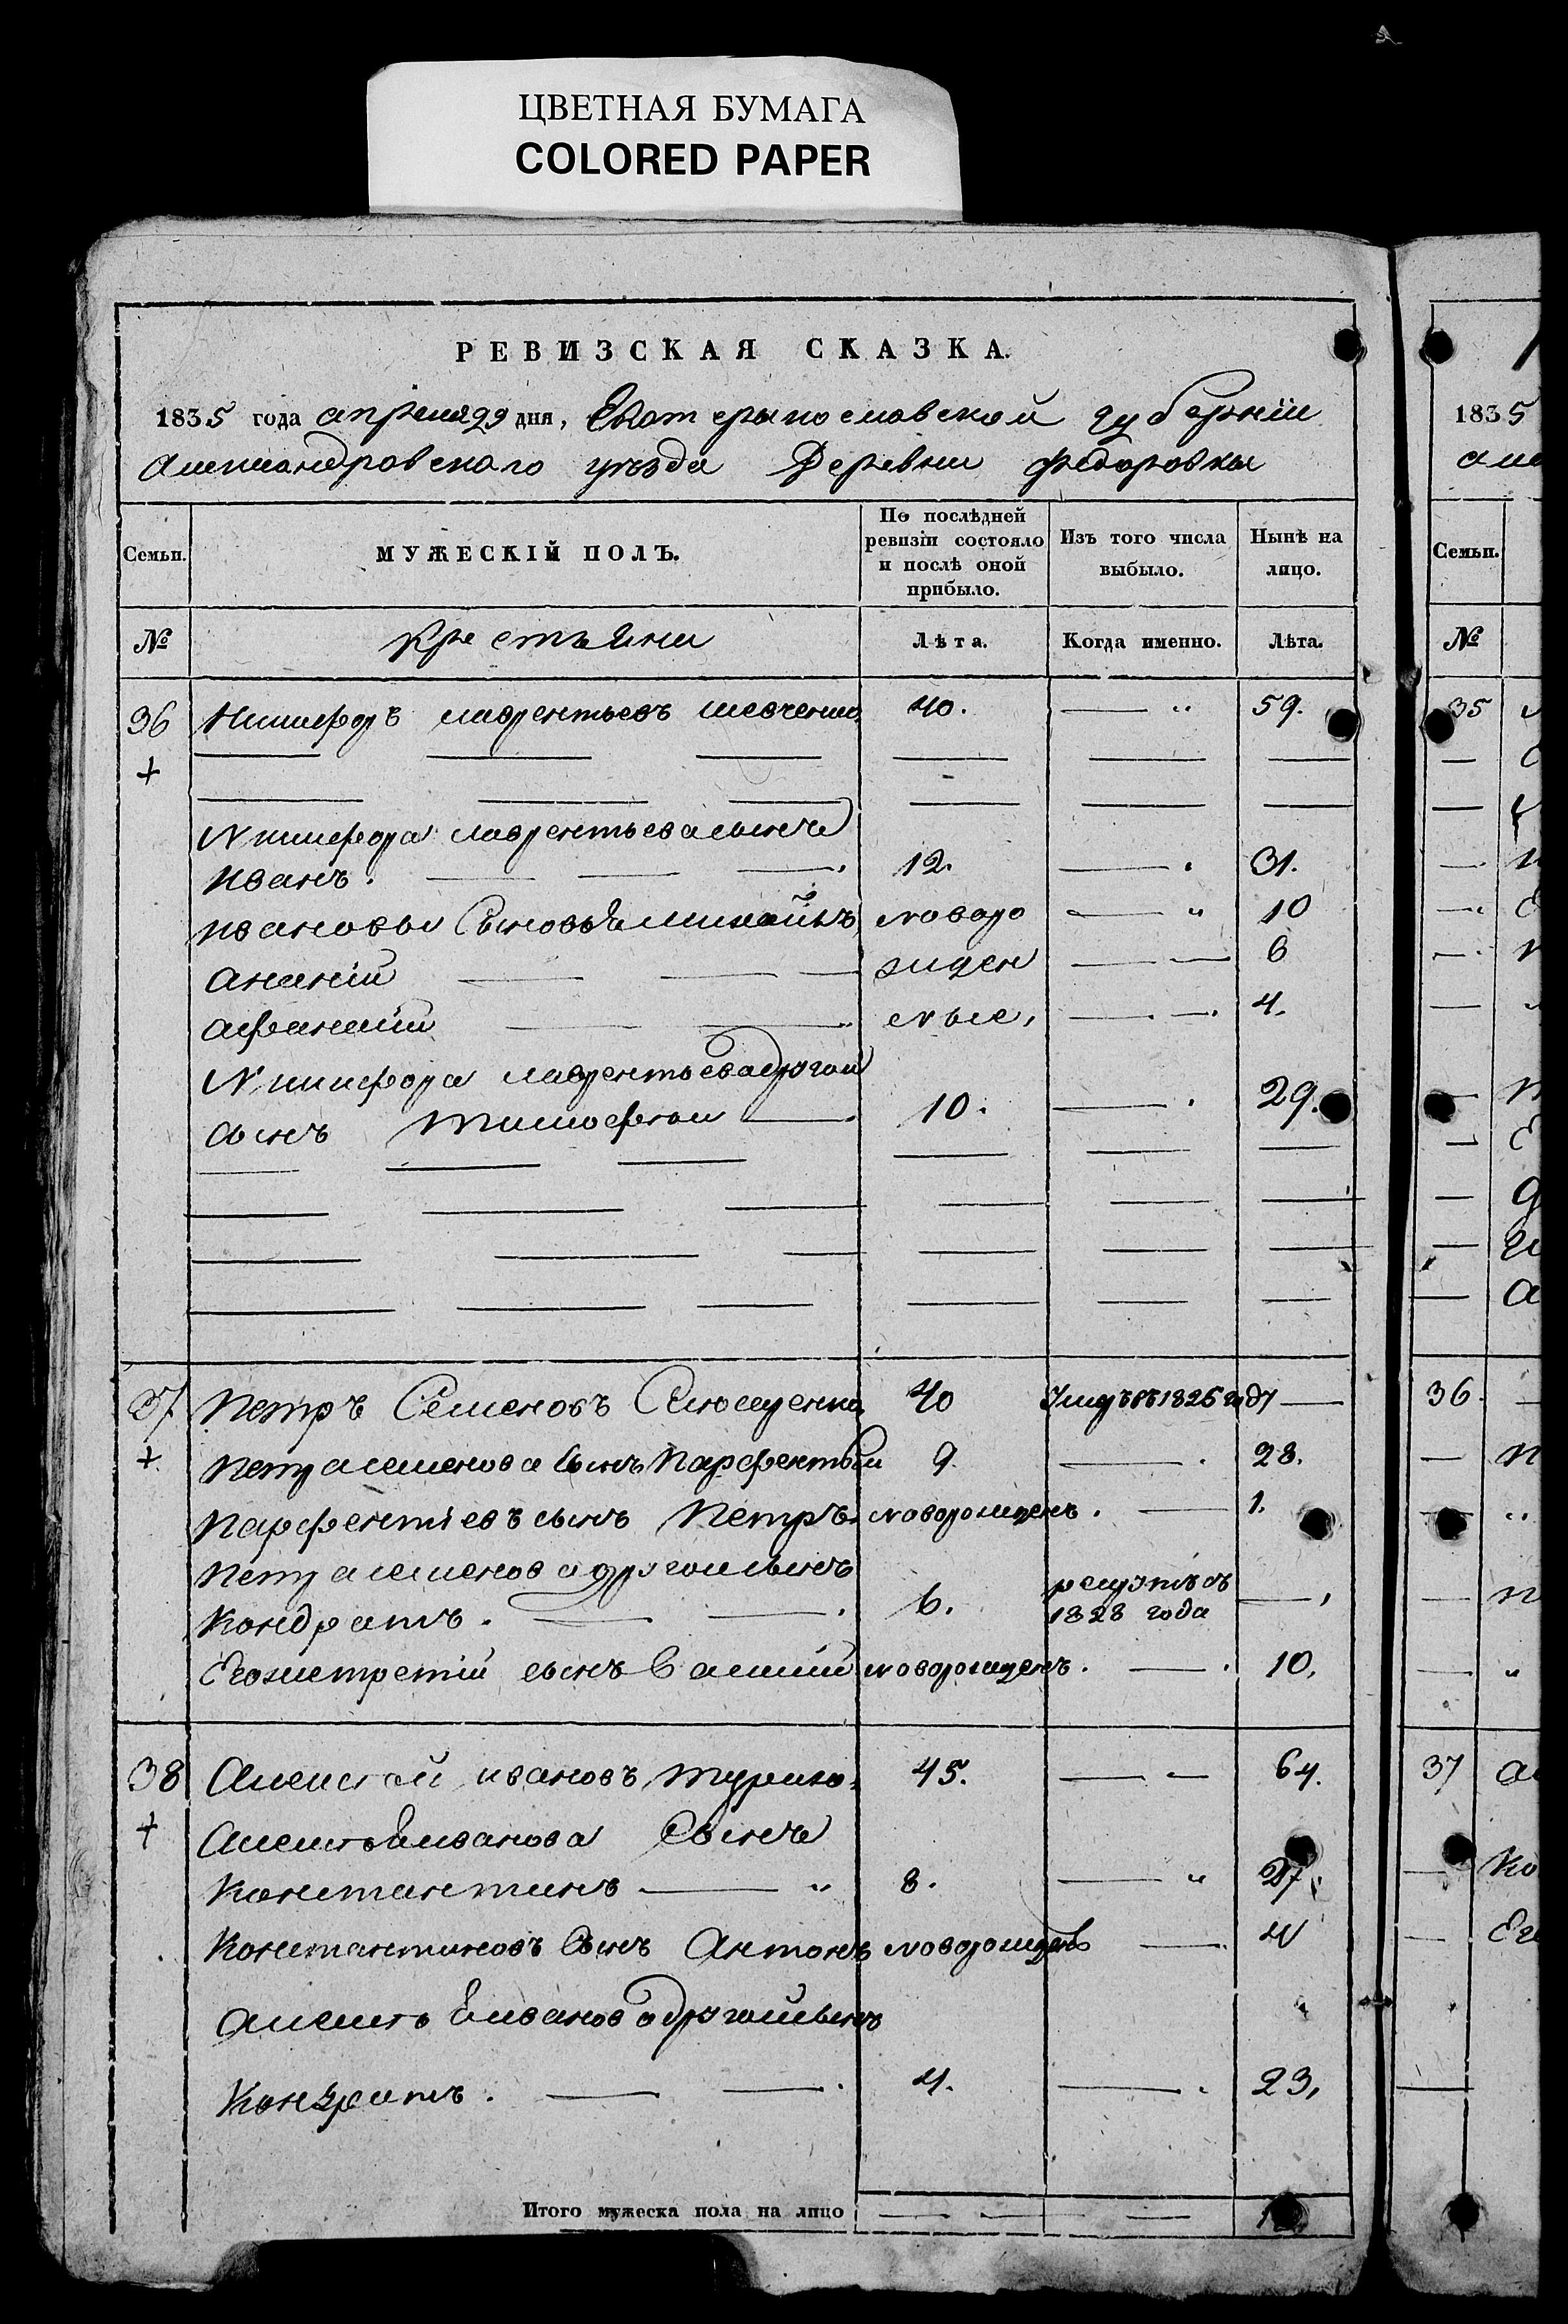 ЦВЕТНАЯ БУМАГА
COLORED PAPER
РЕВИЗСКАЯ СКАЗКА.
1835 года апреля 29 дня, Екатеринославской губернїи
Александровскаго уѣзда Деревни Федоровки
Семьи. МУЖЕСКІЙ ПОЛЪ. По послѣдней ревизіи состояло и послѣ оной прибыло. Изъ того числа выбыло. Нынѣ на лицо.
№ Крестьяни Лѣта. Когда именно. Лѣта.
36 Никифоръ лаврентьевъ шевченко 40. 59.
Никифора лаврентьева сынъ
Иванъ. 12. 31.
Ивановы Сыновья михайлъ новоро 10
Ананїй жден 6
Афанасїй ные, 4.
Никифора лаврентьева другой
сынъ тимофей 10. 29.
37 Петръ Семеновъ 40 Умеръ въ 1826 году
Петра семенова сынъ Парфентїй 9. 28.
Парфентїевъ сынъ Петръ. новорожденъ. 1.
Петра семенова другой сынъ
Кондратъ. 6. рекрутъ съ 1828 года
Егожетретїй сынъ Василїй новорожденъ. 10.
38 Алексей ивановъ турико. 45. 64.
Алексея иванова Сынъ
Константинъ 8. 27.
Константиновъ Сынъ Антонъ новорожденъ 4
Алексея иванова другой сынъ
Кондратъ. 4. 23,
Итого мужеска пола на лицо
1835
Семьи.
№
35
36.
37